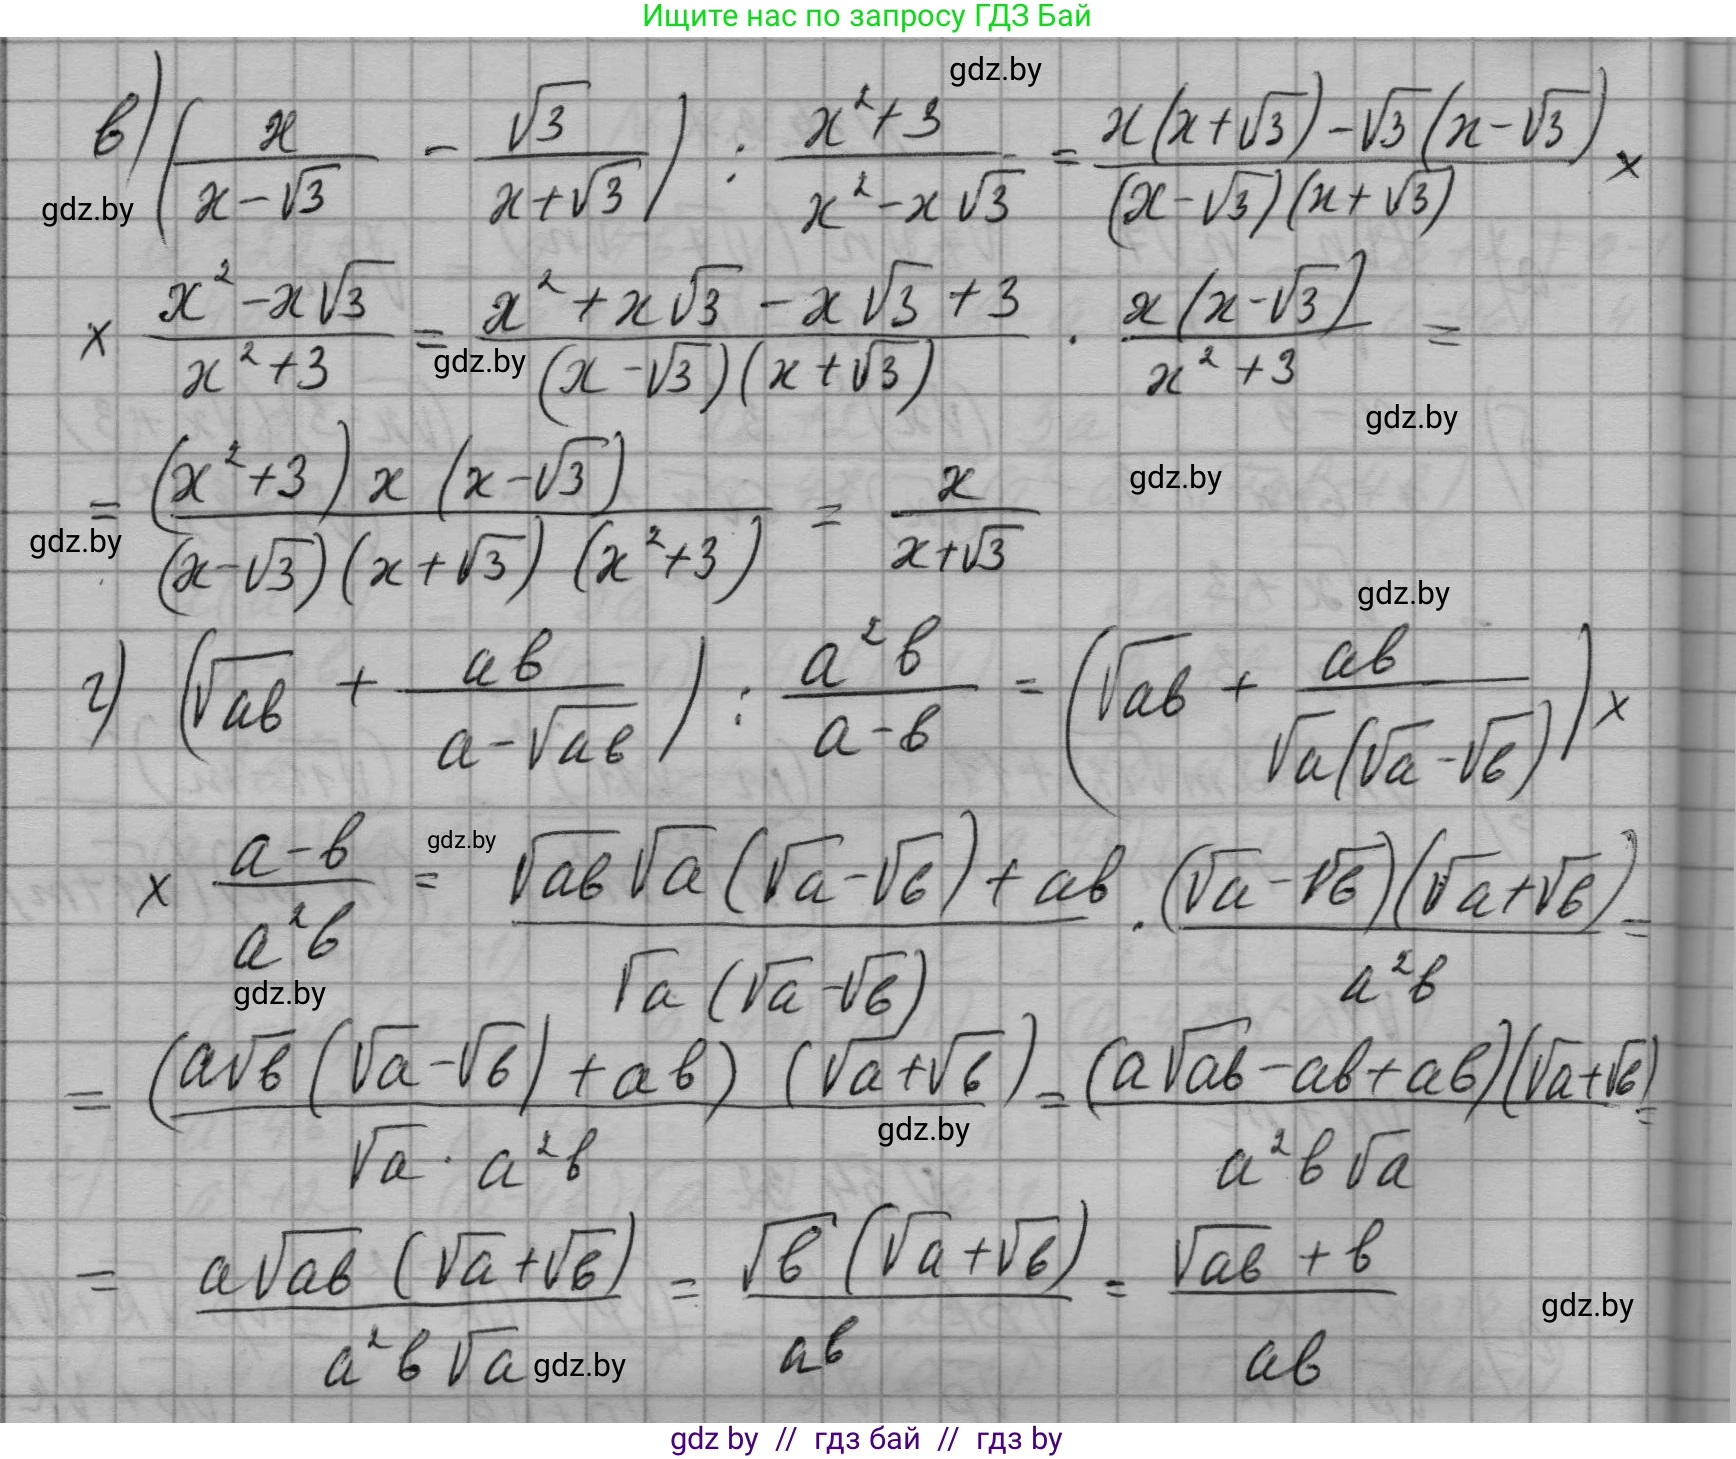 Ищите нас по запросу ГДЗ Бай
gdz.by
в) (x/(x-√3) - √3/(x+√3)) : (x²+3)/(x²-x√3) = (x(x+√3)-√3(x-√3))/((x-√3)(x+√3)) ×
gdz.by
× (x²-x√3)/(x²+3) = (x²+x√3-x√3+3)/((x-√3)(x+√3)) · (x(x-√3))/(x²+3) =
gdz.by
gdz.by
= ((x²+3)x(x-√3))/((x-√3)(x+√3)(x²+3)) = x/(x+√3)
gdz.by
gdz.by
gdz.by
г) (√ab + ab/(a-√ab)) : a²b/(a-b) = (√ab + ab/(√a(√a-√b))) ×
× (a-b)/(a²b) = (√ab √a(√a-√b)+ab)/(√a(√a-√b)) · ((√a-√b)(√a+√b))/(a²b) =
gdz.by
gdz.by
= ((a√b(√a-√b)+ab)(√a+√b))/(√a · a²b) = ((a√ab-ab+ab)(√a+√b))/(a²b√a) =
gdz.by
= (a√ab(√a+√b))/(a²b√a) = (√b(√a+√b))/(ab) = (√ab+b)/(ab)
gdz.by
gdz.by
gdz by // гдз бай // гдз by